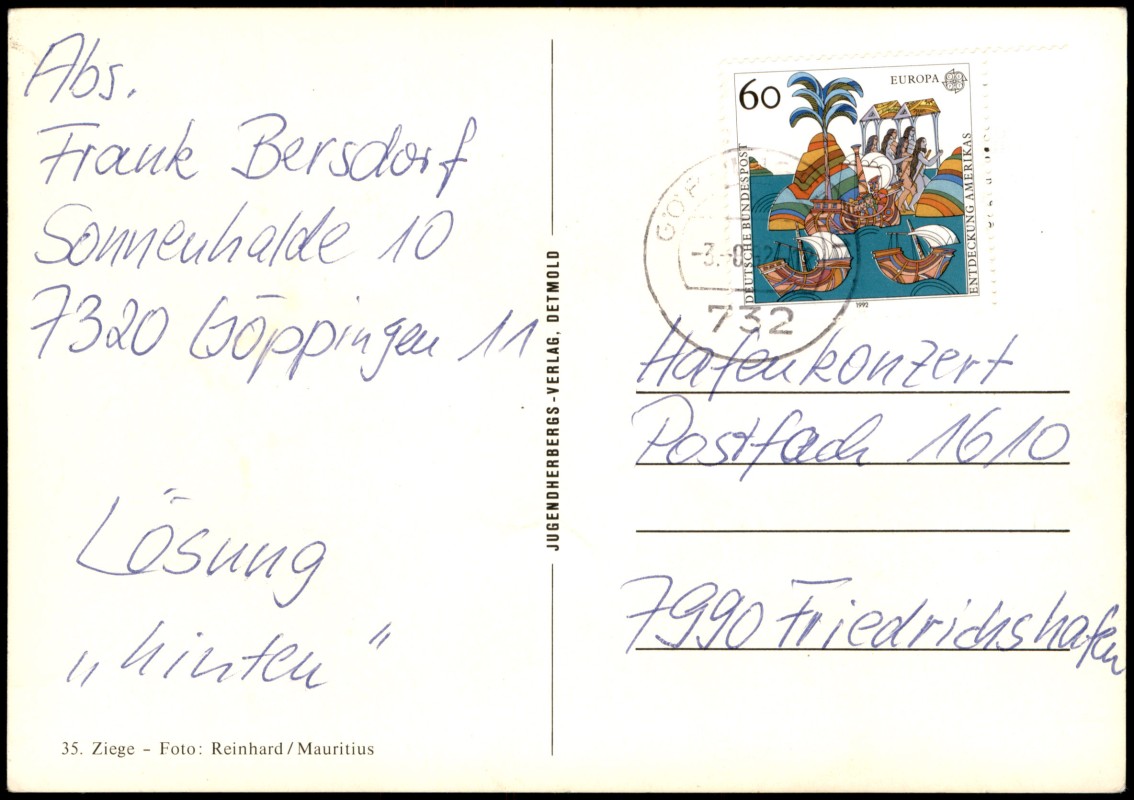 Abs.
Frank Bersdorf
Sonnenhalde 10
7320 Göppingen 11
Lösung
„hinten"
35. Ziege – Foto: Reinhard/Mauritius
JUGENDHERBERGS-VERLAG, DETMOLD
60
EUROPA
DEUTSCHE BUNDESPOST
ENTDECKUNG AMERIKAS
1992
732
Hafenkonzert
Postfach 1610
7990 Friedrichshafen